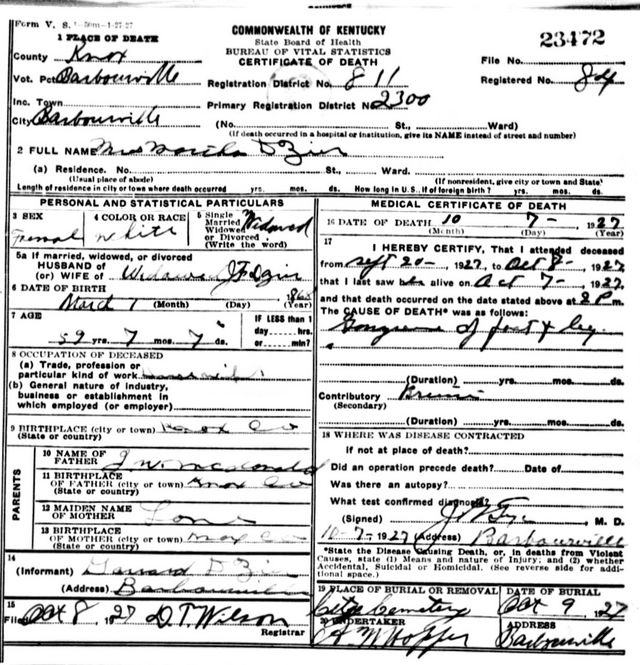 Form V. S. 1-50m-1-27-27
COMMONWEALTH OF KENTUCKY
State Board of Health
BUREAU OF VITAL STATISTICS
CERTIFICATE OF DEATH
23472
1 PLACE OF DEATH
County Knox
File No.
Vot. Pct Barbourville
Registration District No. 811
Registered No. 84
Inc. Town
Primary Registration District No. 2300
City Barbourville
(No. St., Ward)
(If death occurred in a hospital or institution, give its NAME instead of street and number)
2 FULL NAME Mrs Martha
(a) Residence. No. St., Ward.
(Usual place of abode) (If nonresident, give city or town and State)
Length of residence in city or town where death occurred yrs. mos. ds. How long in U.S., if of foreign birth? yrs. mos. ds.
PERSONAL AND STATISTICAL PARTICULARS
3 SEX Femal
4 COLOR OR RACE White
5 Single Married Widowed or Divorced (Write the word) Widowed
5a If married, widowed, or divorced
HUSBAND of
(or) WIFE of Widowed
6 DATE OF BIRTH
March 1 (Month) (Day) (Year)
7 AGE
59 yrs. 7 mos. 7 ds.
IF LESS than 1 day hrs. or min?
8 OCCUPATION OF DECEASED
(a) Trade, profession or
particular kind of work
(b) General nature of industry,
business or establishment in
which employed (or employer)
9 BIRTHPLACE (city or town) Knox Co
(State or country)
PARENTS
10 NAME OF
FATHER J W McDonald
11 BIRTHPLACE
OF FATHER (city or town) Knox Co
(State or country)
12 MAIDEN NAME
OF MOTHER
13 BIRTHPLACE
OF MOTHER (city or town) Knox Co
(State or country)
14
(Informant)
(Address) Barbourville
15
Filed Oct 8, 1927 D.T. Wilson
Registrar
MEDICAL CERTIFICATE OF DEATH
16 DATE OF DEATH 10 7- 1927
(Month) (Day) (Year)
17
I HEREBY CERTIFY, That I attended deceased
from Sept 20- 1927, to Oct 8- 1927
that I last saw h alive on Oct 7- 1927.
and that death occurred on the date stated above at 2 P m.
The CAUSE OF DEATH* was as follows:
Gangrene of foot & leg.
(Duration) yrs. mos. ds.
Contributory
(Secondary)
(Duration) yrs. mos. ds.
18 WHERE WAS DISEASE CONTRACTED
If not at place of death?
Did an operation precede death? Date of
Was there an autopsy?
What test confirmed diagnosis?
(Signed) M. D.
10-7-1927 (Address) Barbourville
*State the Disease Causing Death, or, in deaths from Violent
Causes, state (1) Means and nature of Injury; and (2) whether
Accidental, Suicidal or Homicidal. (See reverse side for addi-
tional space.)
19 PLACE OF BURIAL OR REMOVAL
City Cemetery
DATE OF BURIAL
Oct 9 1927
20 UNDERTAKER
A M Hopper
ADDRESS
Barbourville